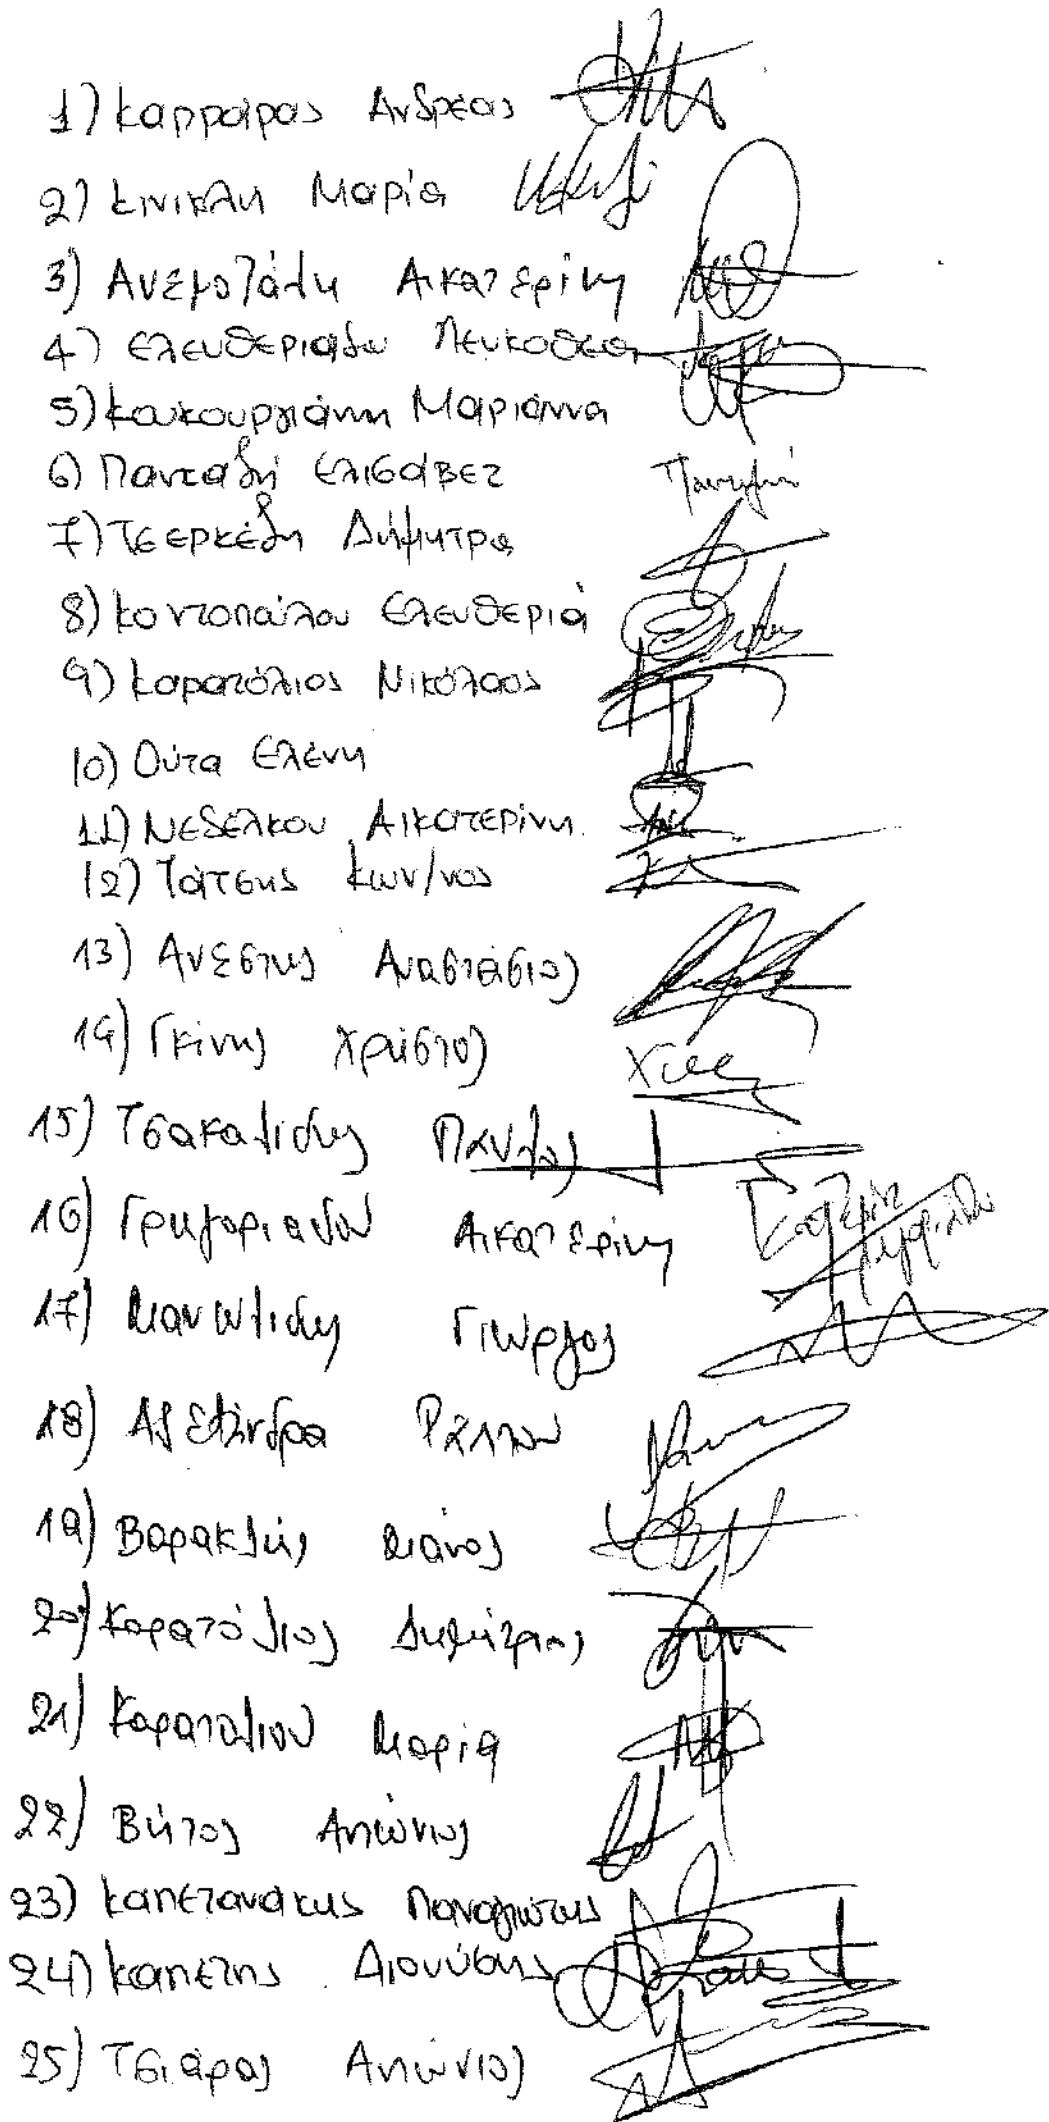 1) Καρράρας Ανδρέας
2) Κινικλη Μαρία
3) Ανεμοζάλη Αικατερίνη
4) Ελευθεριαδω Λευκοθεα
5) Κουκουργιάννη Μαριάννα
6) Πανταζή Ελισάβετ
7) Τσερκέζη Δήμητρα
8) Κοντοπούλου Ελευθεριά
9) Καρατόλιος Νικόλαος
10) Ούτα Ελένη
11) Νεδέλκου Αικατερίνη
12) Τάτσης Κων/νος
13) Ανέστης Αναστάσιος
14) Γκίνης Χρήστος
15) Τσακαλίδης Παύλος
16) Γρηγοριάδου Αικατερίνη
17) Μανωλίδης Γιώργος
18) Αλεξάνδρα Ράλλου
19) Βαρακλής Μάνος
20) Καρατόλιος Δημήτριος
21) Καρατολίου Μαρία
22) Βήτος Αντώνιος
23) Καπετανάκης Παναγιώτης
24) Καπέτης Διονύσης
25) Τσιάρας Αντώνιος